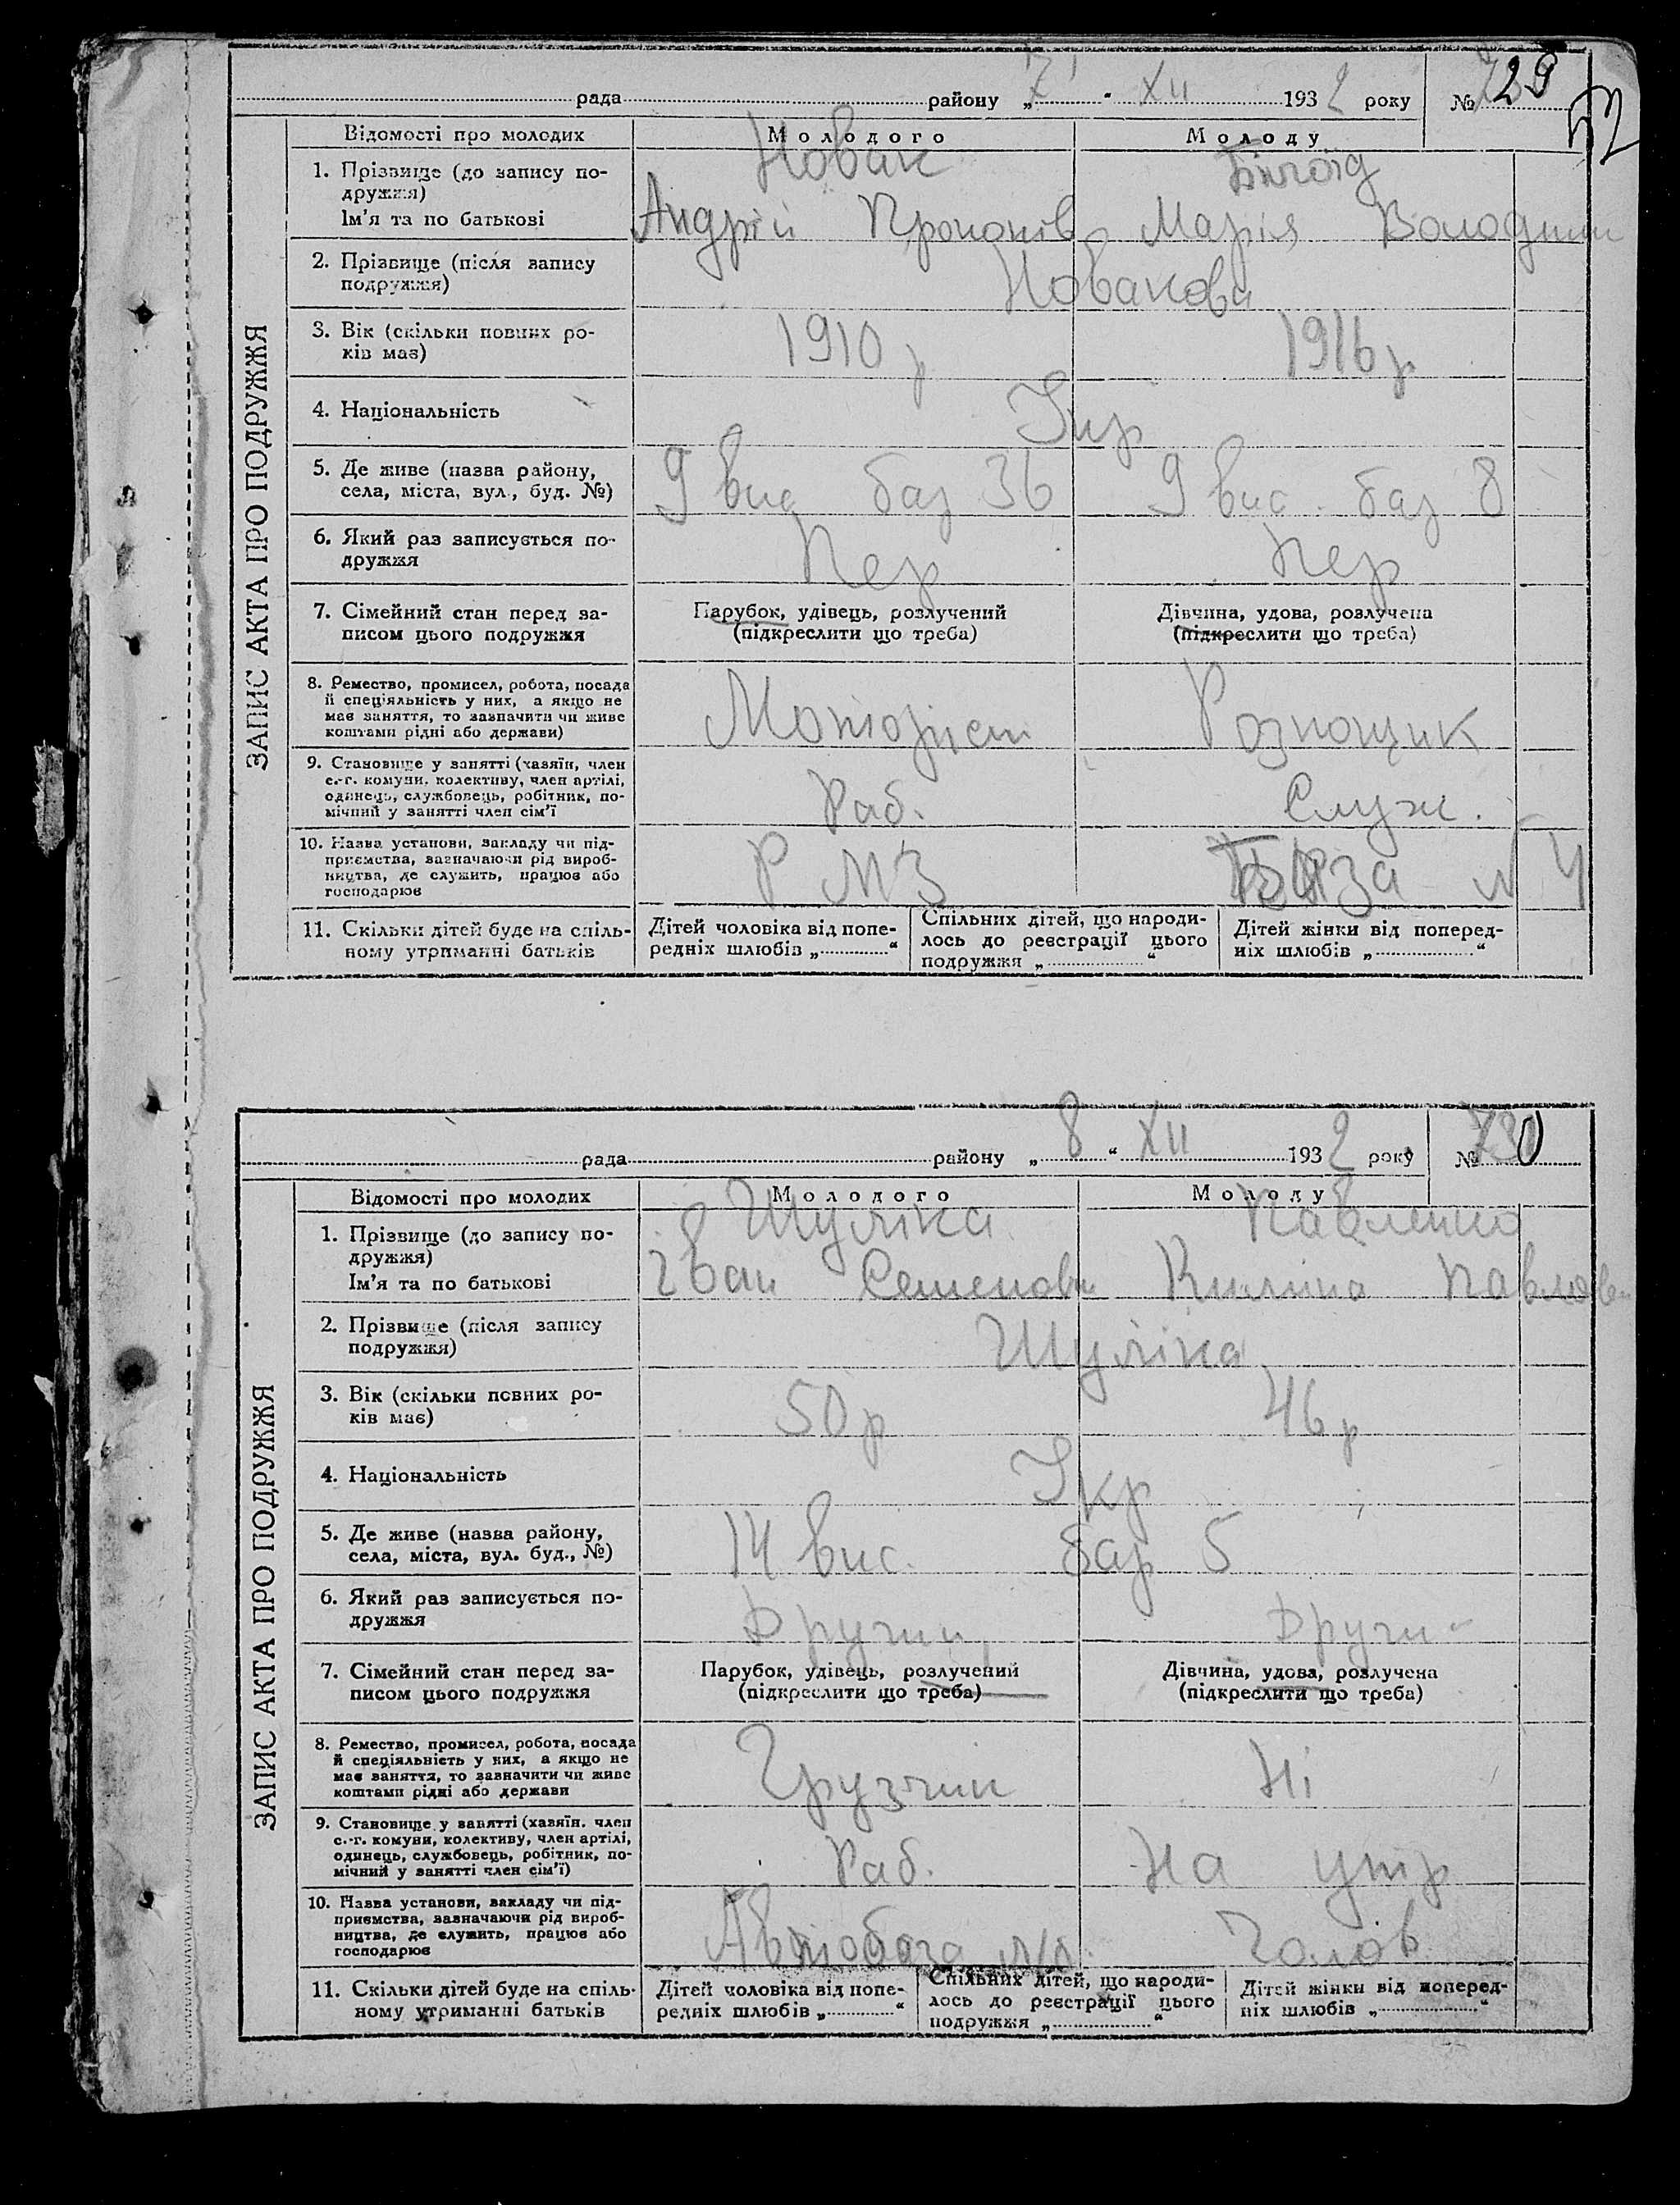 рада району „7" XII 1932 року № 29
ЗАПИС АКТА ПРО ПОДРУЖЖЯ
Відомості про молодих Молодого Молоду
1. Прізвище (до запису по- Новак
дружжя)
Ім'я та по батькові Андрій Марія Володими
2. Прізвище (після запису Новакова
подружжя)
3. Вік (скільки повних ро- 1910 р 1916 р.
ків має)
4. Національність Укр
5. Де живе (назва району, 9 вис баз 36 9 вис. баз 8
села, міста, вул., буд. №)
6. Який раз записується по- Пер Пер
дружжя
7. Сімейний стан перед за- Парубок, удівець, розлучений Дівчина, удова, розлучена
писом цього подружжя (підкреслити що треба) (підкреслити що треба)
8. Ремество, промисел, робота, посада
й спеціяльність у них, а якщо не Моторист Розпощик
має заняття, то зазначити чи живе
коштами рідні або держави)
9. Становище у занятті (хазяїн, член
с.-г. комуни, колективу, член артілі, Раб. Служ.
одинець, службовець, робітник, по-
мічний у занятті член сім'ї
10. Назва установи, закладу чи під- РМЗ
приємства, зазначаючи рід вироб-
ництва, де служить, працює або
господарює
11. Скільки дітей буде на спіль- Дітей чоловіка від попе- Спільних дітей, що народи- Дітей жінки від поперед-
ному утриманні батьків редніх шлюбів „ “ лось до реєстрації цього ніх шлюбів „ “
подружжя „ “
рада району „8“ XII 1932 року № 730
ЗАПИС АКТА ПРО ПОДРУЖЖЯ
Відомості про молодих Молодого Молоду
1. Прізвище (до запису по- Шуліка Павленко
дружжя)
Ім'я та по батькові Іван Семенови Килина Павлов
2. Прізвище (після запису Шуліка
подружжя)
3. Вік (скільки повних ро- 50 р 46 р
ків має)
4. Національність Укр
5. Де живе (назва району, 14 вис. бар 5
села, міста, вул. буд., №)
6. Який раз записується по- Другий Други
дружжя
7. Сімейний стан перед за- Парубок, удівець, розлучений Дівчина, удова, розлучена
писом цього подружжя (підкреслити що треба) (підкреслити що треба)
8. Ремество, промисел, робота, посада
й спеціяльність у них, а якщо не Грузчик Ні
має заняття, то зазначити чи живе
коштами рідні або держави
9. Становище у занятті (хазяїн, член
с.-г. комуни, колективу, член артілі, Раб. На утр
одинець, службовець, робітник, по-
мічний у занятті член сім'ї)
10. Назва установи, закладу чи під- Автобаза Чолов
приємства, зазначаючи рід вироб-
ництва, де служить, працює або
господарює
11. Скільки дітей буде на спіль- Дітей чоловіка від попе- Спільних дітей, що народи- Дітей жінки від поперед-
ному утриманні батьків редніх шлюбів „ “ лось до реєстрації цього ніх шлюбів „ “
подружжя „ “